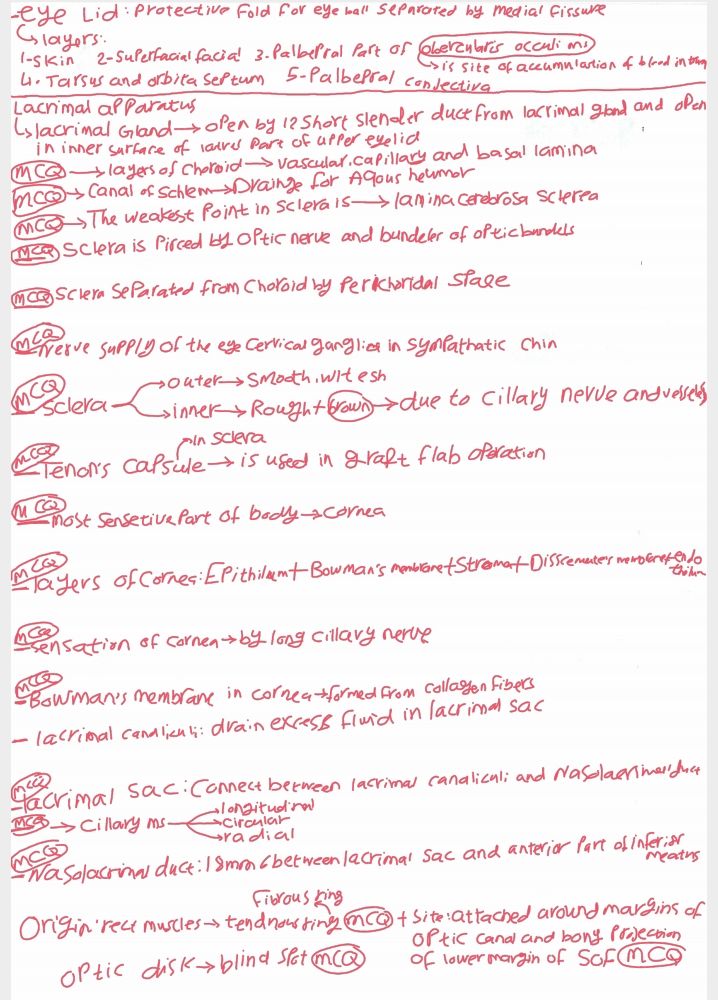 -eye Lid: Protective Fold For eye ball separated by medial fissure
↳layers:
1-skin 2-superfacial facial 3-Palbepral Part of obercularis occuli ms
↳is site of accumulastion of blood in
4-Tarsus and orbita septum 5-Palbepral conjectiva
Lacrimal apparatus
↳lacrimal Gland→open by 12 short slender duct from lacrimal gland and open
in inner surface of Part of upper eyelid
MCQ→layers of Choroid→vascular.capillary and basal lamina
MCQ→Canal of schlem→Drainge for Aqous heumor
MCQ→The weakest Point in sclera is→lamina cerebrosa sclerea
MCQ Sclera is Pirced by optic nerve and bundeler of optic bundels
MCQ Sclera separated from Choroid by Perichoridal space
MCQ
-nerve supply of the eye Cervical ganglies in sympathatic chin
MCQ
-sclera →outer→smooth.witesh
→inner→Rought+brown→due to cillary nerve and vessels
in sclera
MCQ
-Tenon's capsule→is used in graft flab operation
MCQ
-most sensetive part of body→cornea
MCQ
-layers of Cornea:Epithilum+Bowman's membrane+stroma+Disscemete's membrane+endo
thilum
MCQ
-sensation of cornea→by long cillary nerve
MCQ
-Bowman's membrane in cornea→formed from collagen fibers
- lacrimal canaliculi: drain excess fluid in lacrimal sac
MCQ
-lacrimal sac:Connect between lacrimal canaliculi and Nasolacrimal duct
→longitudinal
MCQ→cillary ms→circular
→radial
MCQ
-Nasolacrimal duct:18mm between lacrimal sac and anterior Part of inferior
meatus
Fibrous ring
Origin rect muscles→tendnous ring MCQ + site:attached around margins of
optic canal and bony Projection
of lower margin of SOF MCQ
optic disk→blind spot MCQ